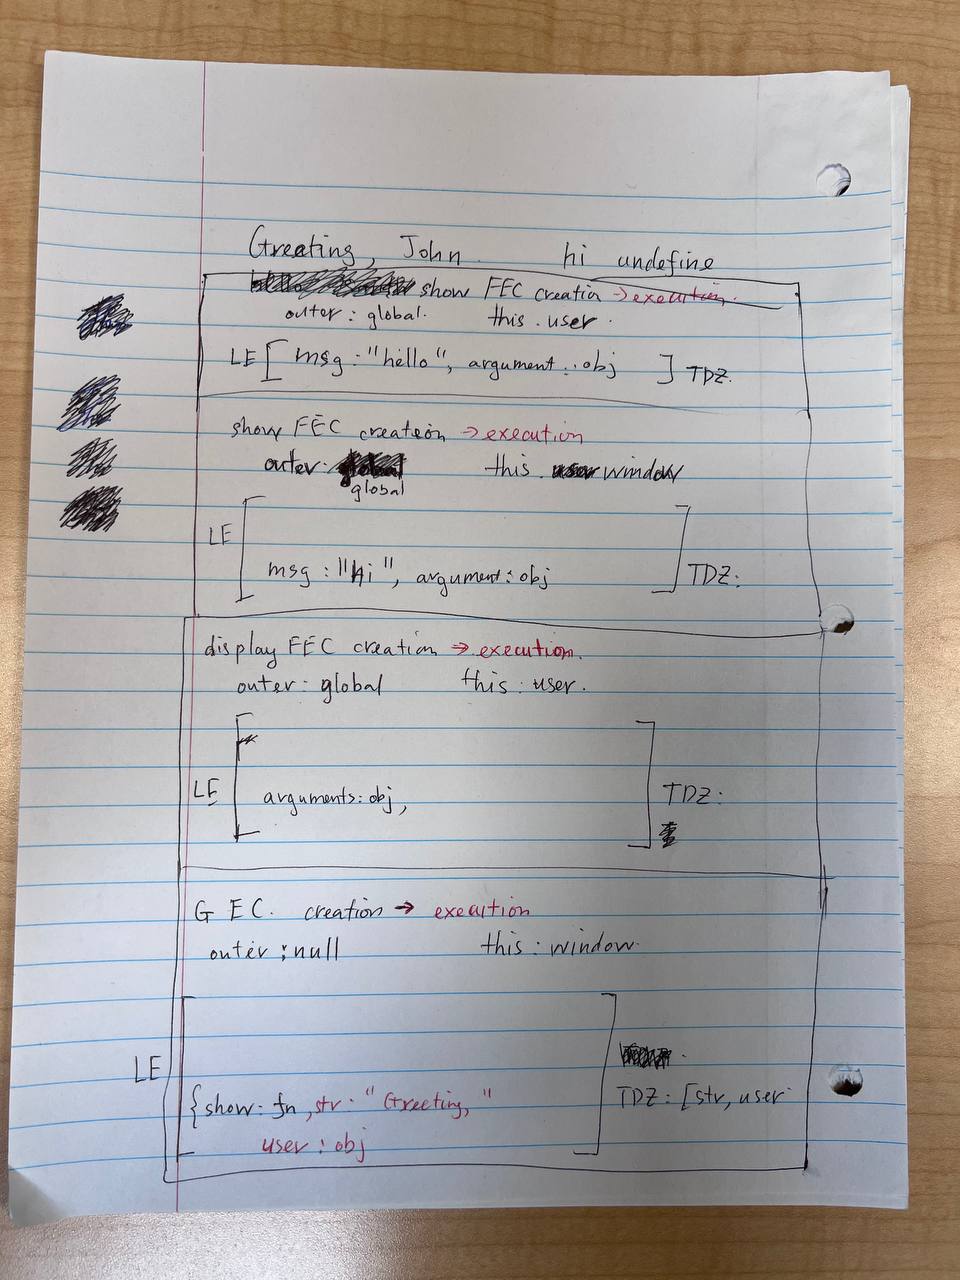 Greating, John. hi undefine
show FEC creation → execution.
outer: global. this. user.
LE [ msg: "hello", argument: obj ] TDZ.
show FEC creation → execution
outer. global this. window
LE [ msg: "Hi", argument: obj ] TDZ:
display FEC creation → execution.
outer: global this: user.
LE [ arguments: obj, ] TDZ:
GEC. creation → execution
outer: null this: window.
LE
{show: fn, str: "Greeting," TDZ: [str, user
user: obj